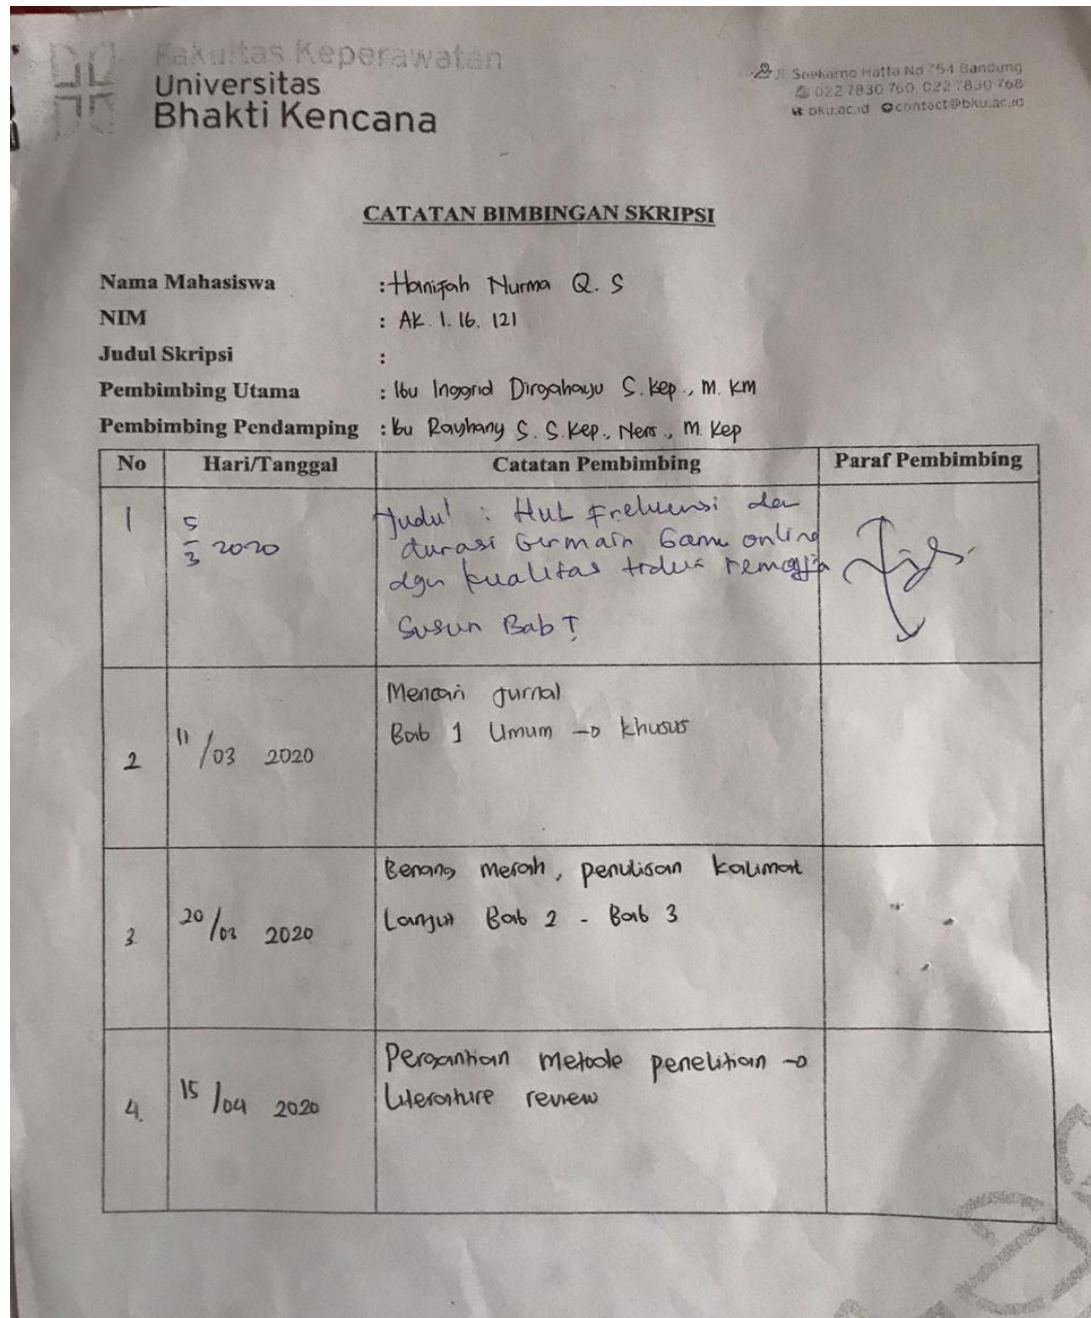 Fakultas Keperawatan
Universitas
Bhakti Kencana
Jl. Soekarno Hatta No 754 Bandung
022 7830 760, 022 7830 768
bku.ac.id contact@bku.ac.id
CATATAN BIMBINGAN SKRIPSI
Nama Mahasiswa : Hanifah Nurma Q. S
NIM : AK. 1. 16. 121
Judul Skripsi :
Pembimbing Utama : Ibu Inggrid Dirgahayu S. Kep., M. KM
Pembimbing Pendamping : Ibu Rayhany S. S. Kep., Ners., M. Kep
No Hari/Tanggal Catatan Pembimbing Paraf Pembimbing
1 5/3 2020 Judul : Hub Frekuensi dan
durasi bermain Game online
dgn kualitas tidur remaja
Susun Bab I
2 11/03 2020 Mencari jurnal
Bab 1 Umum → khusus
3. 20/03 2020 Benang merah, penulisan kalimat
Lanjut Bab 2 - Bab 3
4. 15/04 2020 Pergantian metode penelitian →
Literature review